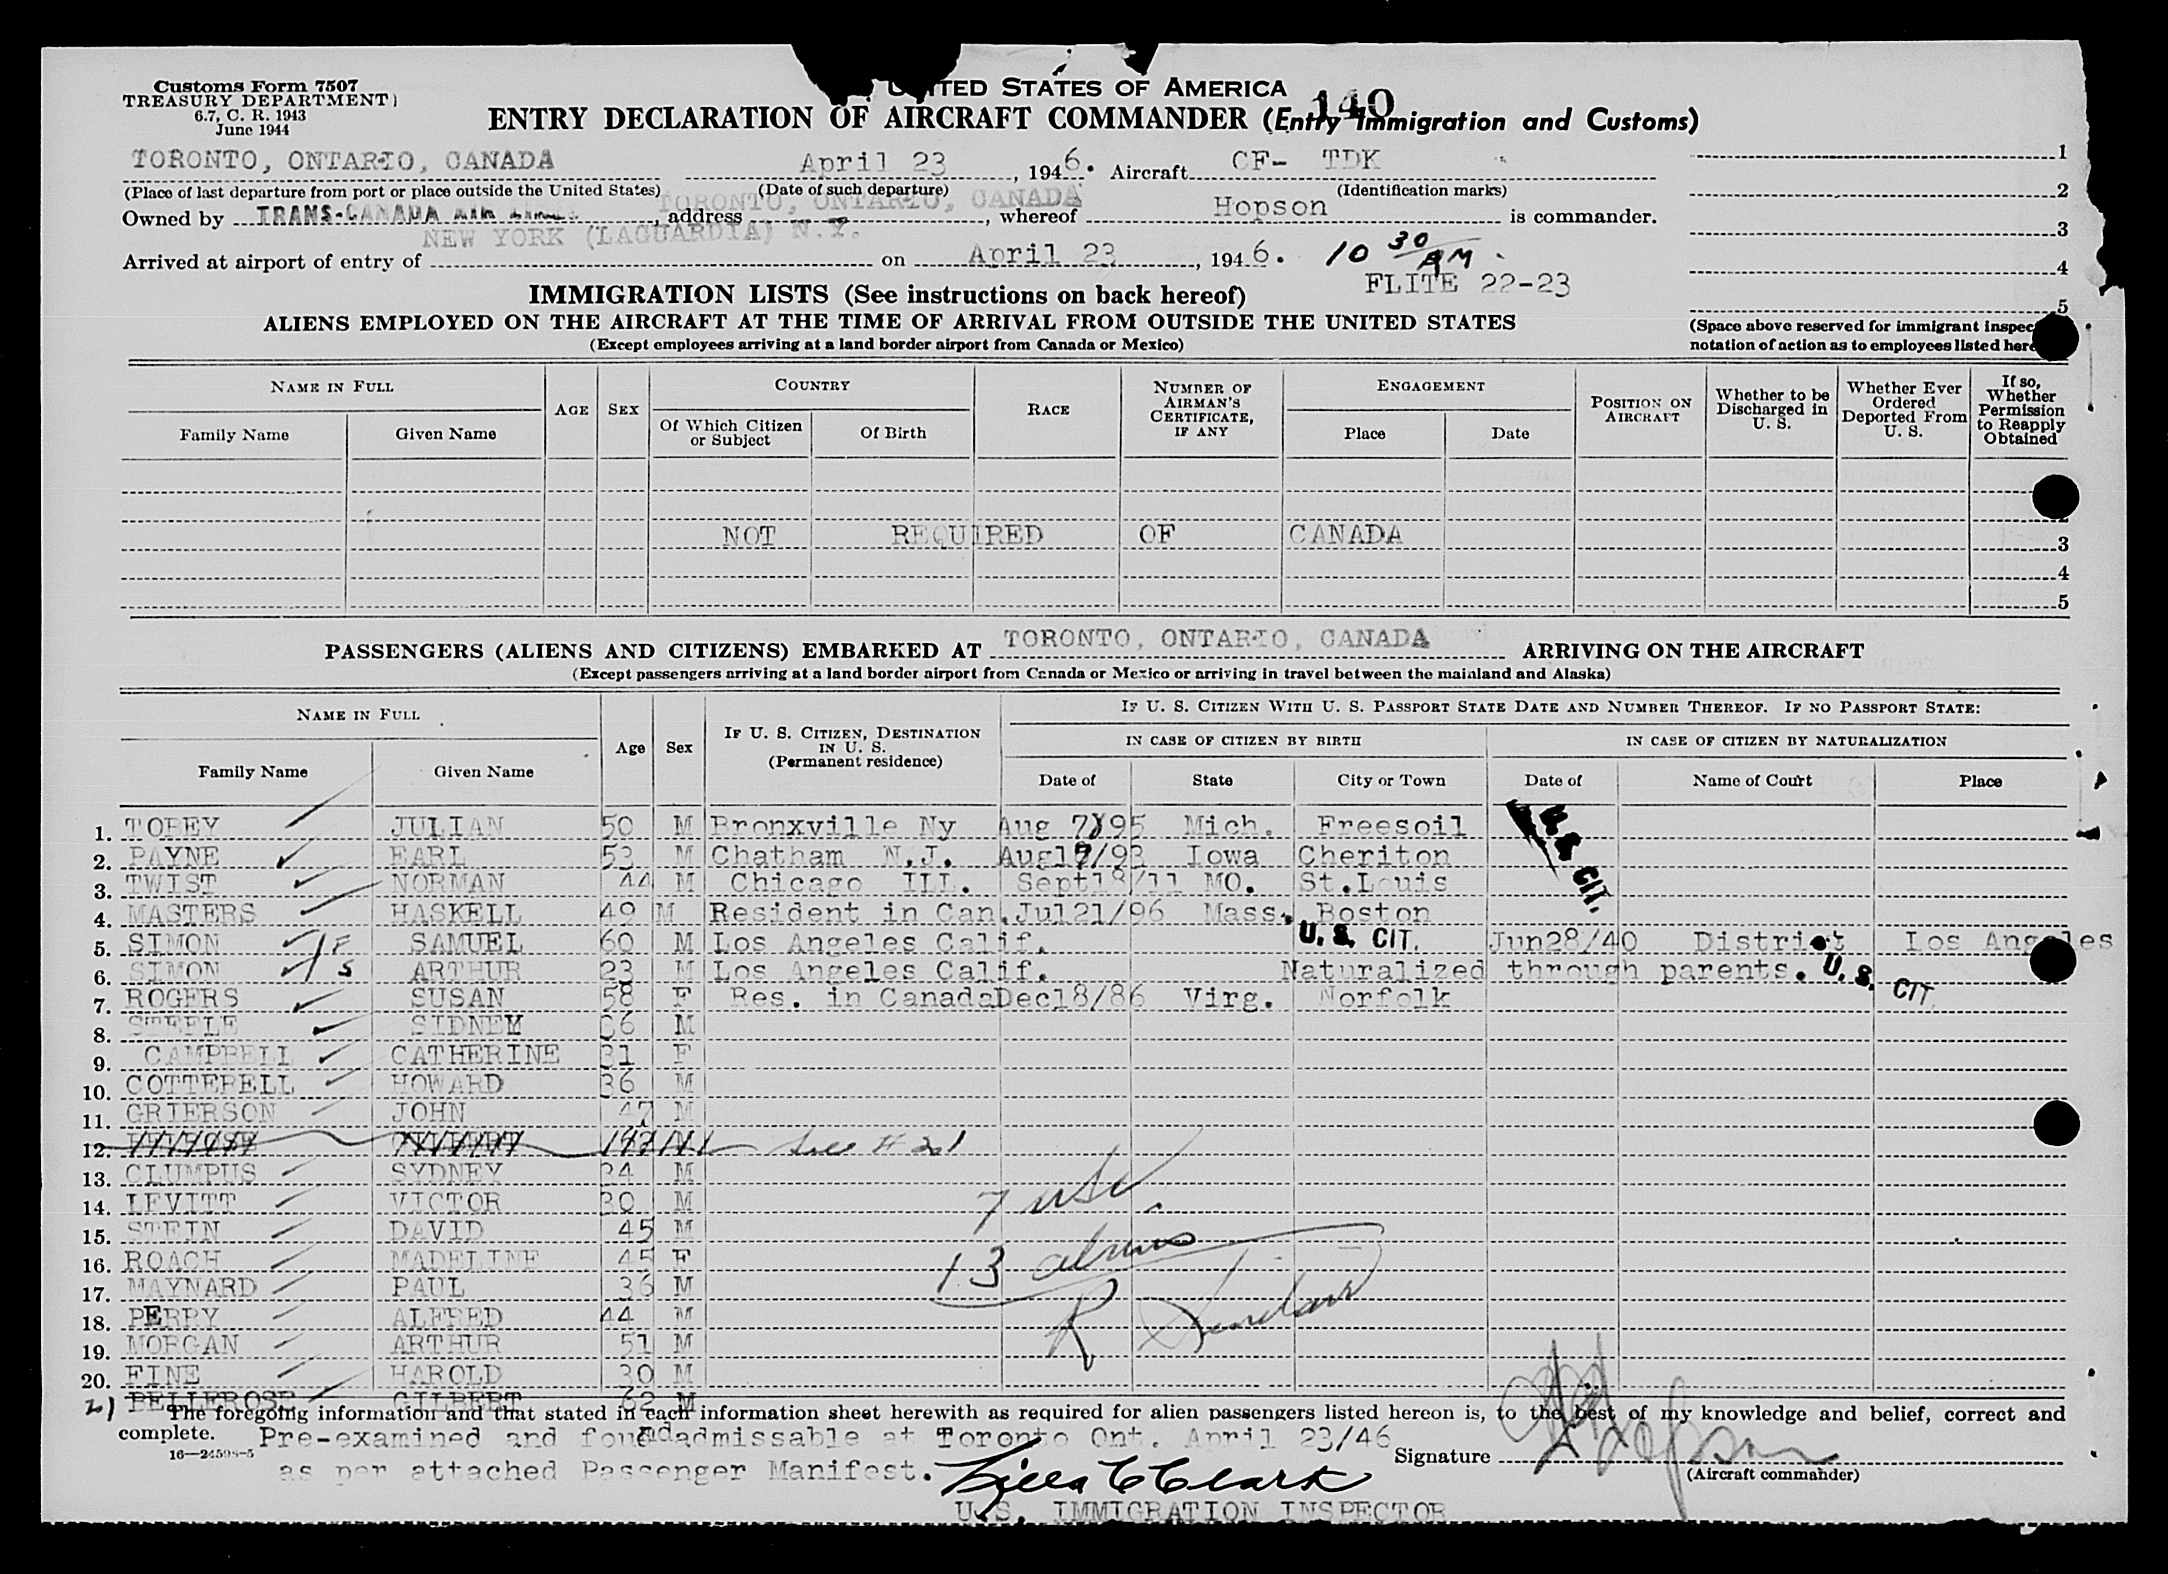 Customs Form 7507
TREASURY DEPARTMENT
6.7, C. R. 1943
June 1944
UNITED STATES OF AMERICA
140
ENTRY DECLARATION OF AIRCRAFT COMMANDER (Entry Immigration and Customs)
TORONTO, ONTARIO, CANADA April 23, 1946. Aircraft CF- TDK
(Place of last departure from port or place outside the United States) (Date of such departure) (Identification marks)
TORONTO, ONTARIO, CANADA
Owned by TRANS-CANADA AIR LINES, address, whereof Hopson is commander.
NEW YORK (LAGUARDIA) N.Y.
Arrived at airport of entry of on April 23, 1946. 10 30 AM.
FLITE 22-23
1
2
3
4
5
IMMIGRATION LISTS (See instructions on back hereof)
ALIENS EMPLOYED ON THE AIRCRAFT AT THE TIME OF ARRIVAL FROM OUTSIDE THE UNITED STATES
(Except employees arriving at a land border airport from Canada or Mexico)
(Space above reserved for immigrant inspec
notation of action as to employees listed here
NAME IN FULL AGE SEX COUNTRY RACE NUMBER OF AIRMAN'S CERTIFICATE, IF ANY ENGAGEMENT POSITION ON AIRCRAFT Whether to be Discharged in U. S. Whether Ever Ordered Deported From U. S. If so, Whether Permission to Reapply Obtained
Family Name Given Name Of Which Citizen or Subject Of Birth Place Date
NOT REQUIRED OF CANADA 3
4
5
PASSENGERS (ALIENS AND CITIZENS) EMBARKED AT TORONTO, ONTARIO, CANADA ARRIVING ON THE AIRCRAFT
(Except passengers arriving at a land border airport from Canada or Mexico or arriving in travel between the mainland and Alaska)
NAME IN FULL Age Sex IF U. S. CITIZEN, DESTINATION IN U. S. (Permanent residence) IF U. S. CITIZEN WITH U. S. PASSPORT STATE DATE AND NUMBER THEREOF. IF NO PASSPORT STATE:
IN CASE OF CITIZEN BY BIRTH IN CASE OF CITIZEN BY NATURALIZATION
Family Name Given Name Date of State City or Town Date of Name of Court Place
1. TOBEY JULIAN 50 M Bronxville Ny Aug 7/95 Mich. Freesoil
2. PAYNE EARL 53 M Chatham N.J. Aug /93 Iowa Cheriton U. S. CIT.
3. TWIST NORMAN 44 M Chicago Ill. Sept18/11 MO. St.Louis
4. MASTERS HASKELL 49 M Resident in Can. Jul21/96 Mass. Boston
5. SIMON F SAMUEL 60 M Los Angeles Calif. U. S. CIT. Jun28/40 District Los Angeles
6. SIMON S ARTHUR 23 M Los Angeles Calif. Naturalized through parents. U. S. CIT.
7. ROGERS SUSAN 58 F Res. in Canada Dec18/86 Virg. Norfolk
8. STEELE SIDNEY 66 M
9. CAMPBELL CATHERINE 31 F
10. COTTERELL HOWARD 36 M
11. GRIERSON JOHN 47 M
12. See # 21
13. CLUMPUS SYDNEY 34 M
14. LEVITT VICTOR 30 M
15. STEIN DAVID 45 M
16. ROACH MADELINE 45 F
17. MAYNARD PAUL 36 M
18. PERRY ALFRED 44 M
19. MORGAN ARTHUR 51 M
20. FINE HAROLD 30 M
21 BELLEROSE GILBERT 62 M
7 USC
13 aliens
R Sinclair
The foregoing information and that stated in each information sheet herewith as required for alien passengers listed hereon is, to the best of my knowledge and belief, correct and
complete. Pre-examined and found admissable at Toronto Ont. April 23/46
16—24598-5 as per attached Passenger Manifest.
Signature Hopson
(Aircraft commander)
Clark
U.S. IMMIGRATION INSPECTOR